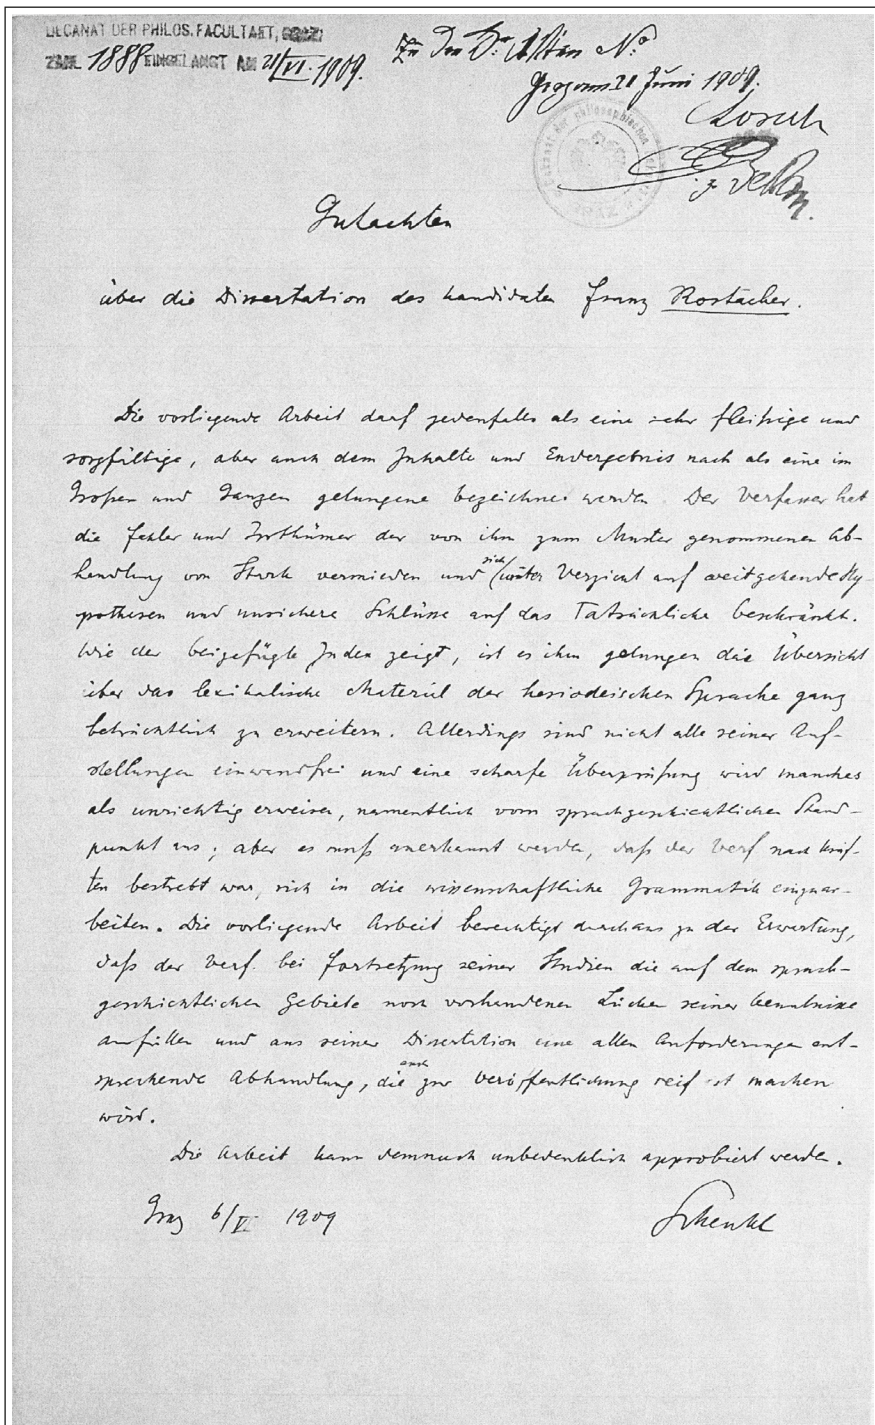 DECANAT DER PHILOS. FACULTAET, GRAZ
ZAHL 1888 EINGELANGT AM 21/VI. 1909.
Zu den Dr. Akten No.
Graz am 21 Juni 1909.
Gutachten
über die Dissertation des Kandidaten Franz Rostacher.
Die vorliegende Arbeit darf jedenfalls als eine sehr fleißige und
sorgfältige, aber auch dem Inhalte und Endergebnis nach als eine im
Großen und Ganzen gelungene bezeichnet werden. Der Verfasser hat
die Fehler und Irrthümer der von ihm zum Muster genommenen Ab-
handlung von Sterk vermieden und sich unter Verzicht auf weitgehende Hy-
pothesen und unsichere Schlüsse auf das Tatsächliche beschränkt.
Wie der beigefügte Index zeigt, ist es ihm gelungen die Übersicht
über das lexikalische Material der hesiodeischen Sprache ganz
beträchtlich zu erweitern. Allerdings sind nicht alle seiner Auf-
stellungen einwandfrei und eine scharfe Überprüfung wird manches
als unrichtig erweisen, namentlich vom sprachgeschichtlichen Stand-
punkt aus; aber es muß anerkannt werden, daß der Verf nach Kräf-
ten bestrebt war, sich in die wissenschaftliche Grammatik einzuar-
beiten. Die vorliegende Arbeit berechtigt durchaus zu der Erwartung,
daß der Verf. bei Fortsetzung seiner Studien die auf dem sprach-
geschichtlichen Gebiete noch vorhandenen Lücken seiner Kenntnisse
ausfüllen und aus seiner Dissertation eine allen Anforderungen ent-
sprechende Abhandlung, die auch zur Veröffentlichung reif ist machen
wird.
Die Arbeit kann demnach unbedenklich approbiert werden.
Graz 6/VI 1909
Schenkl